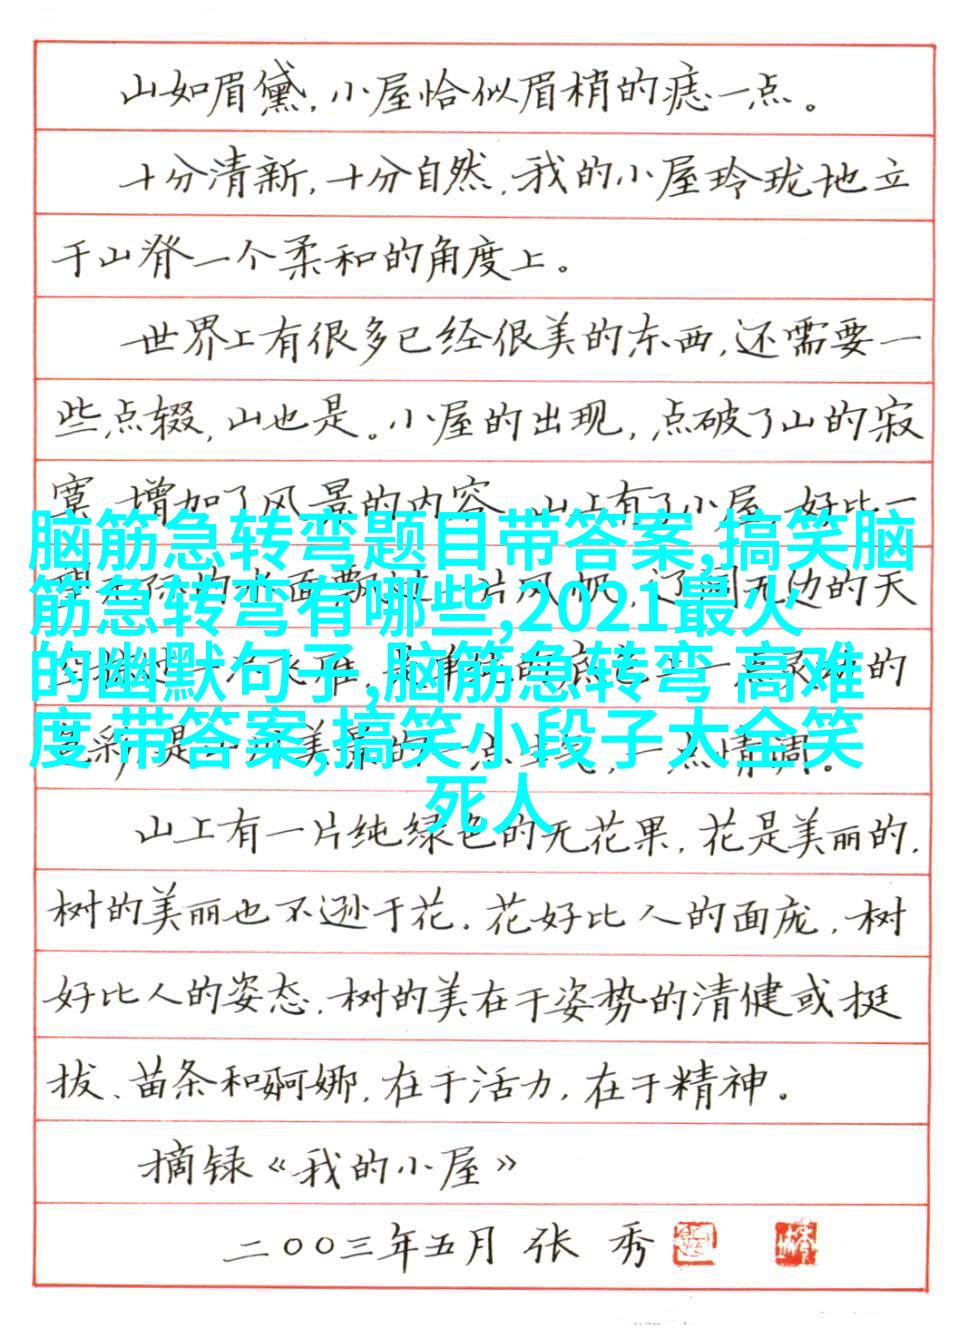 山如眉黛,小屋恰似眉梢的痣一点。
十分清新,十分自然,我的小屋玲珑地立
于山脊一个柔和的角度上。
世界上有很多已经很美的东西,还需要一
些点缀,山也是。小屋的出现,点破了山的寂
寞,增加了风景的内容。山上有了小屋,好比一
脑筋急转弯题目带答案,搞笑脑
筋急转弯有哪些,2021最火
的幽默句子,脑筋急转弯 高难
度 带答案,搞笑小段子大全笑
死人
片风帆,辽阔无边的天
的
一点情调。
山上有一片纯绿色的无花果,花是美丽的,
树的美丽也不逊于花。花好比人的面庞,树
好比人的姿态,树的美在于姿势的清健或挺
拔、苗条和婀娜,在于活力,在于精神。
摘録《我的小屋》
二〇〇三年五月 张 秀